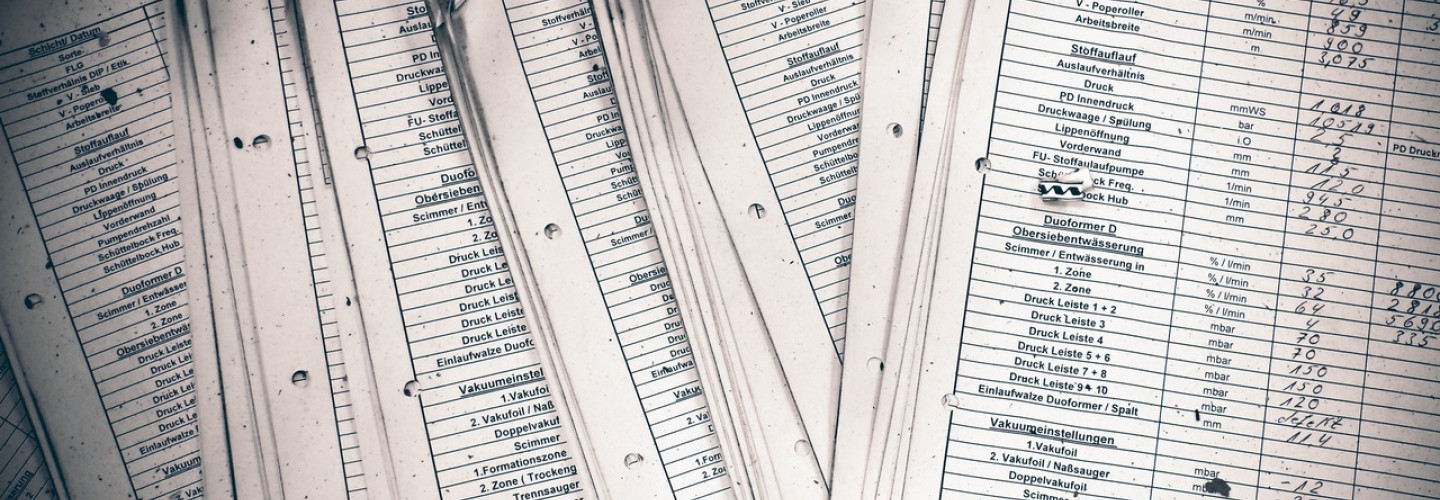 Schicht/ Datum
Sorte
FLG
Stoffverhältnis DIP / Etik.
V - Sieb
V - Poperoller
Arbeitsbreite
Stoffauflauf
Auslaufverhältnis
Druck
PD Innendruck
Druckwaage / Spülung
Lippenöffnung
Vorderwand
Pumpendrehzahl
Schüttelbock Freq.
Schüttelbock Hub
Duoformer D
Scimmer / Entwässer
1. Zone
2. Zone
Obersiebentwä
Druck Leiste
Druck Leiste
Druck Le
Druck Le
Druck Le
Einlaufwalze
Vakuum
1. Va
Sto
Ausla
PD In
Druckwaa
Lippe
Vord
FU- Stoffa
Schüttel
Schüttel
Duofo
Obersieben
Scimmer / Entw
1. Zo
2. Zo
Druck Leis
Druck Leis
Druck Leis
Druck Leiste
Druck Leiste
Einlaufwalze Duofo
Vakuumeinstel
1.Vakufoi
2. Vakufoil / Naß
Doppelvakuf
Scimmer
1.Formationszone
2. Zone ( Trockeng
Trennsauger
Stoffverhäl
V - Po
Arbei
Stoff
Auslau
PD In
Druckwa
Lipp
Vo
Pum
Schüt
Schütt
Du
Scimmer /
Obersie
Druc
Dru
Dr
Dr
Einlaufwa
Vakuu
1. Va
2. Va
Do
1.For
2. Zon
Stoffverhältni
V - Sieb
V - Poperoller
Arbeitsbreite
Stoffauflauf
Auslaufverhältnis
Druck
PD Innendruck
Druckwaage / Spü
Lippenöffnun
Vorderwar
Pumpendre
Schüttelbo
Schüttelb
Duo
Scimmer /
Obe
%
V - Poperoller m/min. 859
Arbeitsbreite m/min 900
m 3,075
Stoffauflauf
Auslaufverhältnis
Druck mmWS 1018
PD Innendruck bar 10519 PD Druckr
Druckwaage / Spülung i.O
Lippenöffnung mm
Vorderwand mm 11.5
FU- Stoffaulaufpumpe 1/min 12.0
ock Freq. 1/min 945
bock Hub mm 280
250
Duoformer D
Obersiebentwässerung
Scimmer / Entwässerung in % / l/min 35
1. Zone % / l/min 32
2. Zone % / l/min 64
Druck Leiste 1 + 2 % / l/min 4
Druck Leiste 3 mbar 70
Druck Leiste 4 mbar 70
Druck Leiste 5 + 6 mbar 150
Druck Leiste 7 + 8 mbar 150
Druck Leiste 9 + 10 mbar 120
Einlaufwalze Duoformer / Spalt mbar defekt
mm 11.4
Vakuumeinstellungen
1.Vakufoil
2. Vakufoil / Naßsauger mbar
Doppelvakufoil mbar -12
Scimme